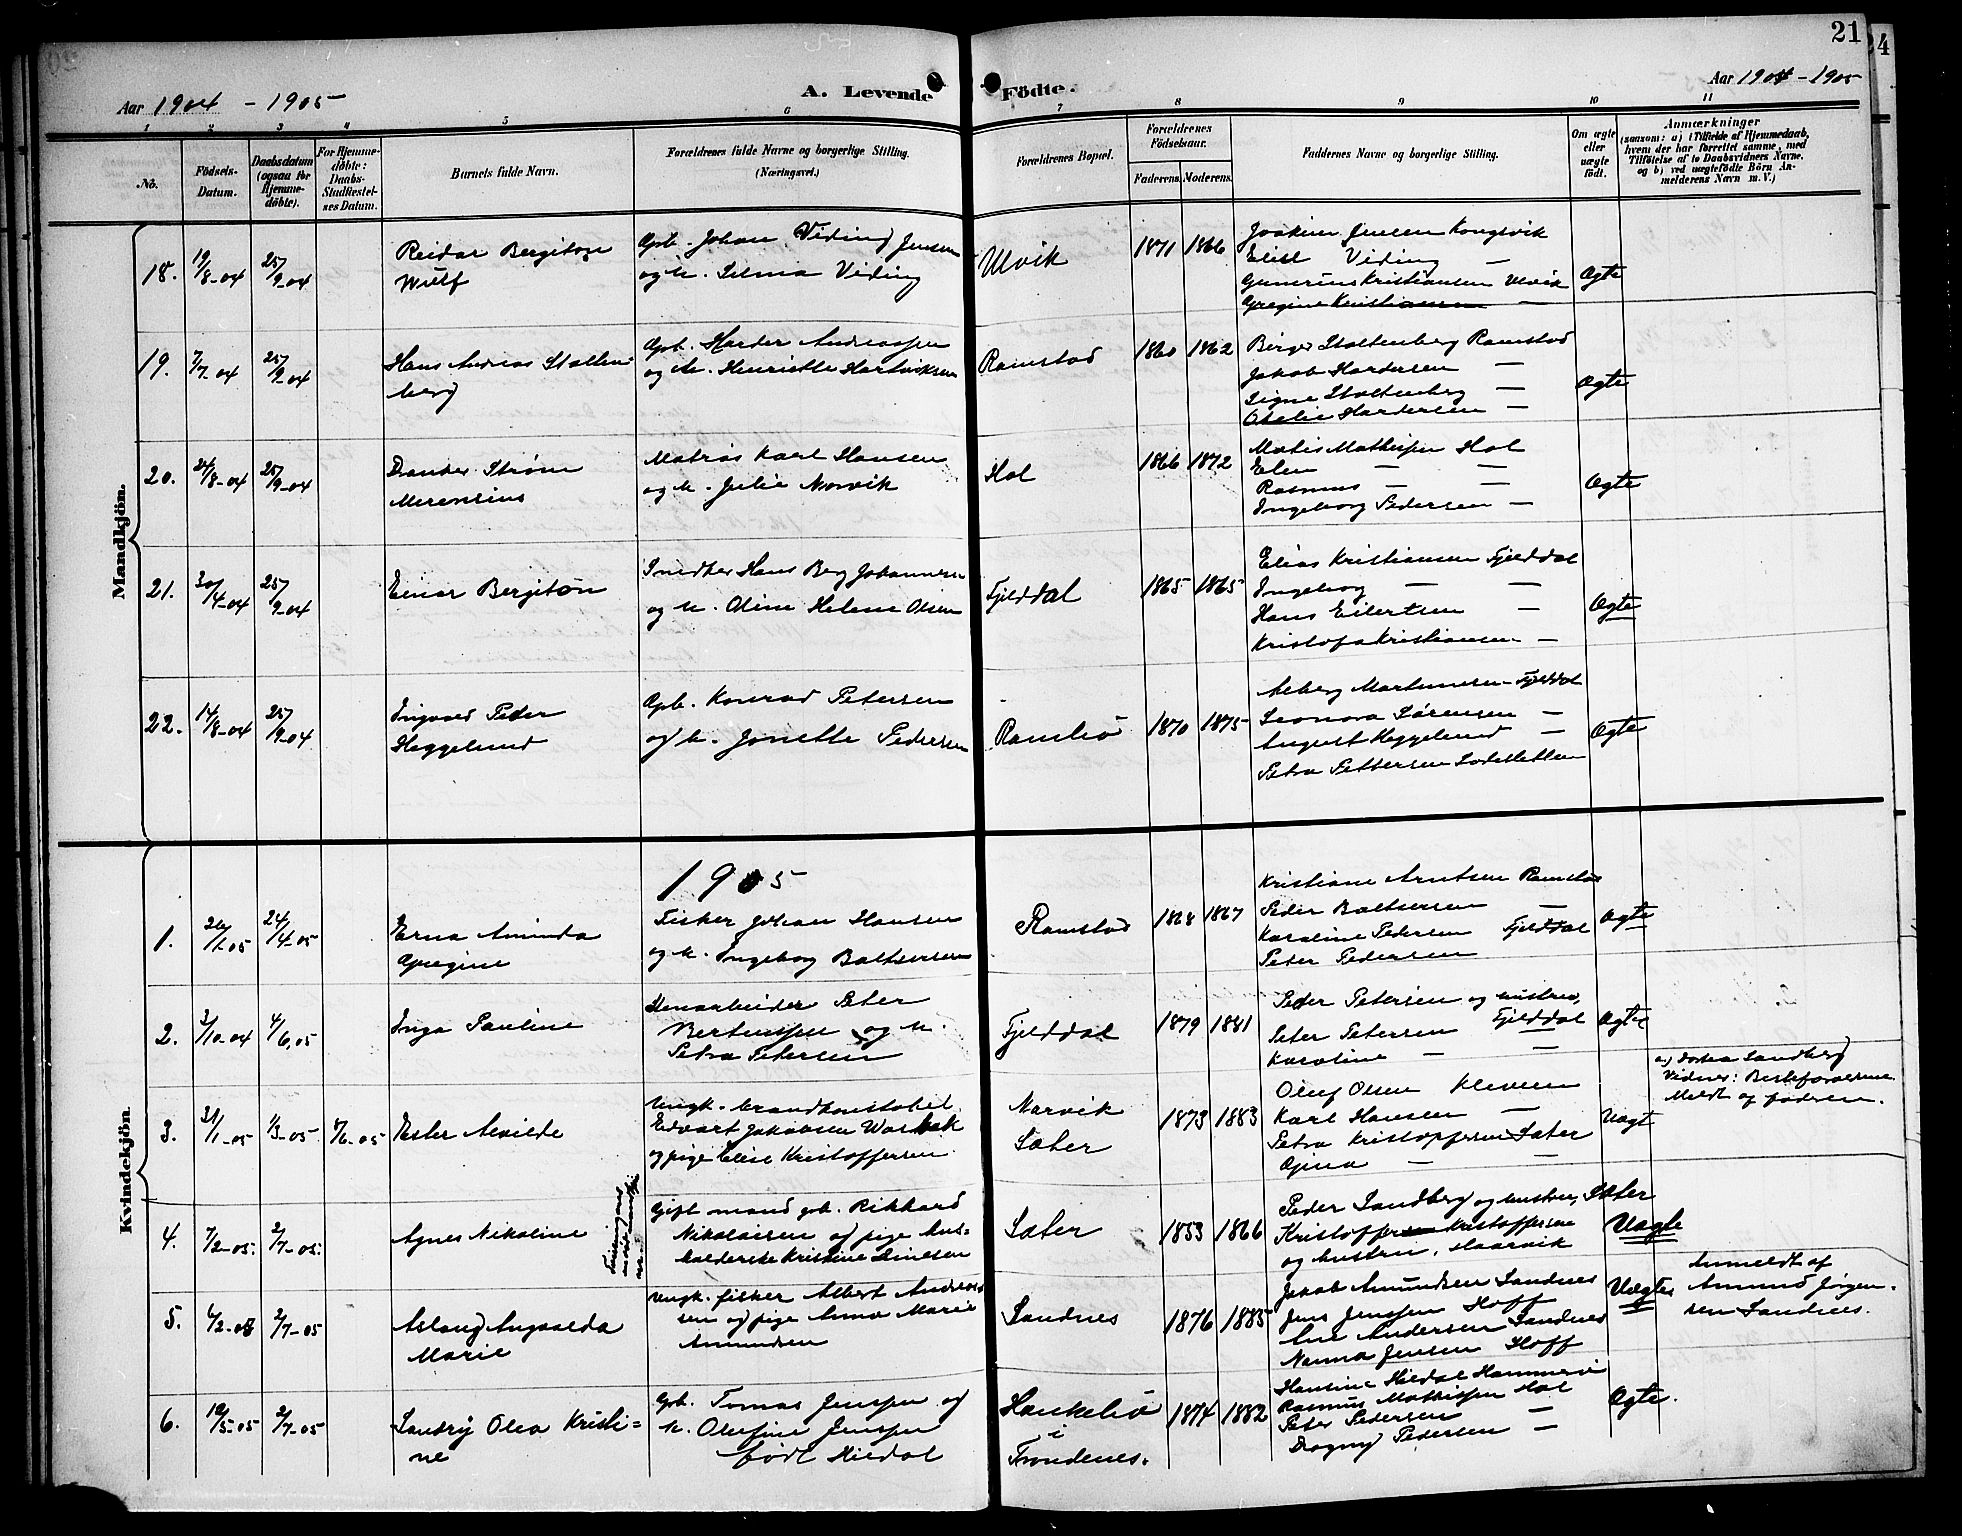 21
24
Aar 1904 - 1905
A. Levende Födte.
Aar 1904 - 1905
1 2 3 4 5 6 7 8 9 10 11
No.
Födsels-
Datum.
Daabsdatum
(ogsaa for
Hjemme-
döbte).
For Hjemme-
döbte:
Daabs-
Stadfæstel-
ses Datum.
Barnets fulde Navn.
Forældrenes fulde Navne og borgerlige Stilling.
(Næringsvei.)
Forældrenes Bopæl.
Forældrenes
Födselsaar.
Faderens. Moderens.
Faddernes Navne og borgerlige Stilling.
Om ægte
eller
uægte
født.
Anmærkninger
(saasom: a) i Tilfælde af Hjemmedaab,
hvem der har forrettet samme, med
Tilföielse af to Daabsvidners Navne,
og b) ved uægtefödte Börn An-
melderens Navn m. V.)
Mandkjön.
18. 19/8-04 25/9-04
Reidar Bergiton
Wulf
Gpb. Johan Viding Jensen
og h. Selma Viding
Ulvik
1871 1866
Joakim Jensen Kongsvik
Elise Viding —
Gunerius Kristiansen Ulvik
Gregine Kristiansen —
Ægte
19. 7/7-04 25/9-04
Hans Andreas Stolten-
berg
Gpb. Harder Andreassen
og h. Henriette Hartviksen
Ramstad
1860 1862
Birger Stoltenberg Ramstad
Jakob Hardersen —
Signe Stoltenberg —
Otelie Hardersen —
Ægte
20. 24/8-04 25/9-04
Strøm
Merensius
Matros Karl Hansen
og h. Julie Norvik
Hol
1866 1872
Matis Mathisen Hol
Elen — —
Rasmus — —
Ingeborg Pedersen —
Ægte
21. 30/4-04 25/9-04
Einar Bergiton
Inderst Hans Berg Johannesen
og h. Oline Helene Olsen
Fjelddal
1865 1865
Elias Kristiansen Fjelddal
Ingeborg — —
Hans Eilertsen —
Kristofa Kristiansen —
Ægte
22. 14/8-04 25/9-04
Ingvard Peder
Heggelund
Gpb. Konrad Petersen
og h. Jonette Pedersen
Rambø
1870 1875
Aeberg Martinusen Fjelddal
Leonora Sørensen —
August Heggelund —
Petra Pettersen
Ægte
Kvindekjön.
1905
1. 26/1.05 24/4.05
Erna Aminda
Gregine
Fisker Johan Hansen
og h. Ingeborg Baltsersen
Ramstad
1868 1867
Kristiane Arntsen Ramstad
Peder Baltsersen —
Karoline Pedersen Fjelddal
Peter Pedersen
Ægte
2. 3/10-04 4/6.05
Inga Pauline
Stenarbeider Peter
Berteussen og h.
Petra Petersen
Fjelddal
1879 1881
Peder Petersen og hustru,
Peter Petersen Fjelddal
Karoline — —
Ægte
3. 31/1-05 1/3-05 4/6-05
Ester Alvilde
Ungk. brandkonstabel
Edvart Jakobsen
og pige Elise Kristoffersen
Narvik
Sæter
1873 1883
Oluf Olsen Kleven
Karl Hansen —
Petra Kristoffersen Sæter
Gjina — —
Uægt
a) Dortea Sandberg
Vidner: Besteforældrene
Meldt og fødsen.
4. 7/2-05. 2/7-05.
Agnes Nikoline
Gift mand gb. Rikhard
Nikolaisen og pige hus-
holderske Kristine Dinesen
Sæter
1853 1866
Peder Sandberg og hustru, Sæter
Kristoffer Kristoffersen
og hustru, Haarvik
Uægte
5. 6/2-05 2/7-05
Aslaug Ingvalda
Marie
Ungk. fisker Albert Andreas-
sen og pige Anna Marie
Amundsen
Sandnes
1876 1885
Jakob Amundsen Sandnes
Jens Jenssen Hoff
Ane Andersen Sandnes
Nanna Jensen Hoff
Uægte
Anmeldt af
Ammo Jörgen-
sen Sandnes.
6. 10/5-05 2/7-05
Sandry Olea Kristi-
ne
Gpb. Tomas Jenssen og
h. Olufine Jenssen
født Hildal
Haukebø
i
Trondenes.
1874 1882
Hansine Hildal Hammervi
Rasmus Mathissen Hol
Peter Pedersen —
Dagny Pedersen —
Ægte.